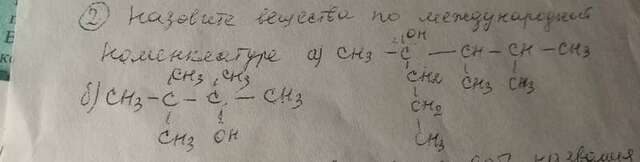 ② Назовите вещества по международной
номенклатуре а) CH3 - C - CH - CH - CH3
OH
CH2 CH3 CH3
CH2
CH3
CH3 CH3
б) CH3 - C - C - CH3
CH3 OH